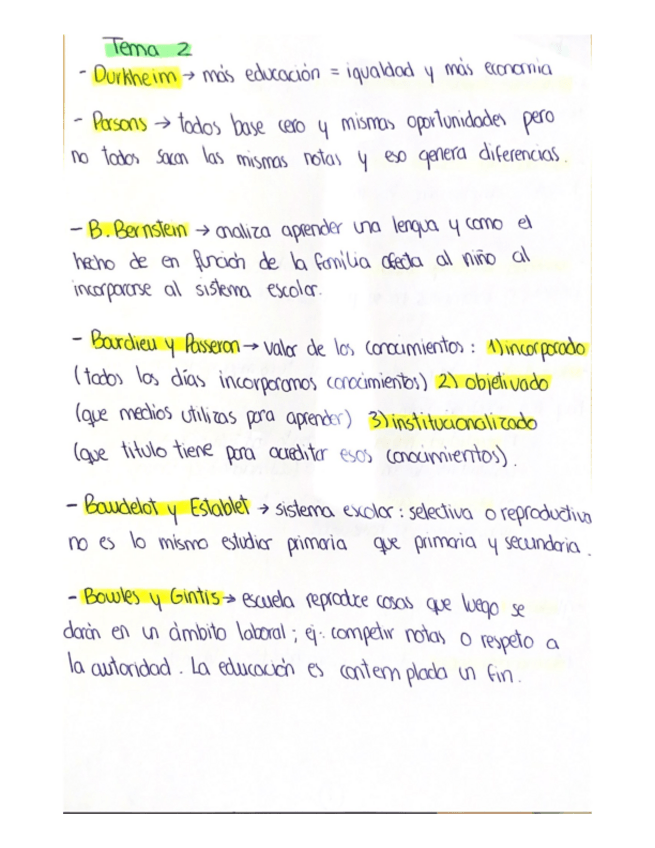 Tema 2
- Durkheim → más educación = igualdad y más economía
- Parsons → todos base cero y mismas oportunidades pero
no todos sacan las mismas notas y eso genera diferencias.
- B. Bernstein → analiza aprender una lengua y como el
hecho de en función de la familia afecta al niño al
incorporarse al sistema escolar.
- Bourdieu y Passeron → valor de los conocimientos: 1) incorporado
(todos los días incorporamos conocimientos) 2) objetivado
(que medios utilizas para aprender) 3) institucionalizado
(que titulo tiene para acreditar esos conocimientos).
- Baudelot y Establet → sistema excolar: selectiva o reproductiva
no es lo mismo estudiar primaria que primaria y secundaria.
- Bowles y Gintis → escuela reproduce cosas que luego se
darán en un ámbito laboral; ej: competir notas o respeto a
la autoridad. La educación es contemplada un fin.